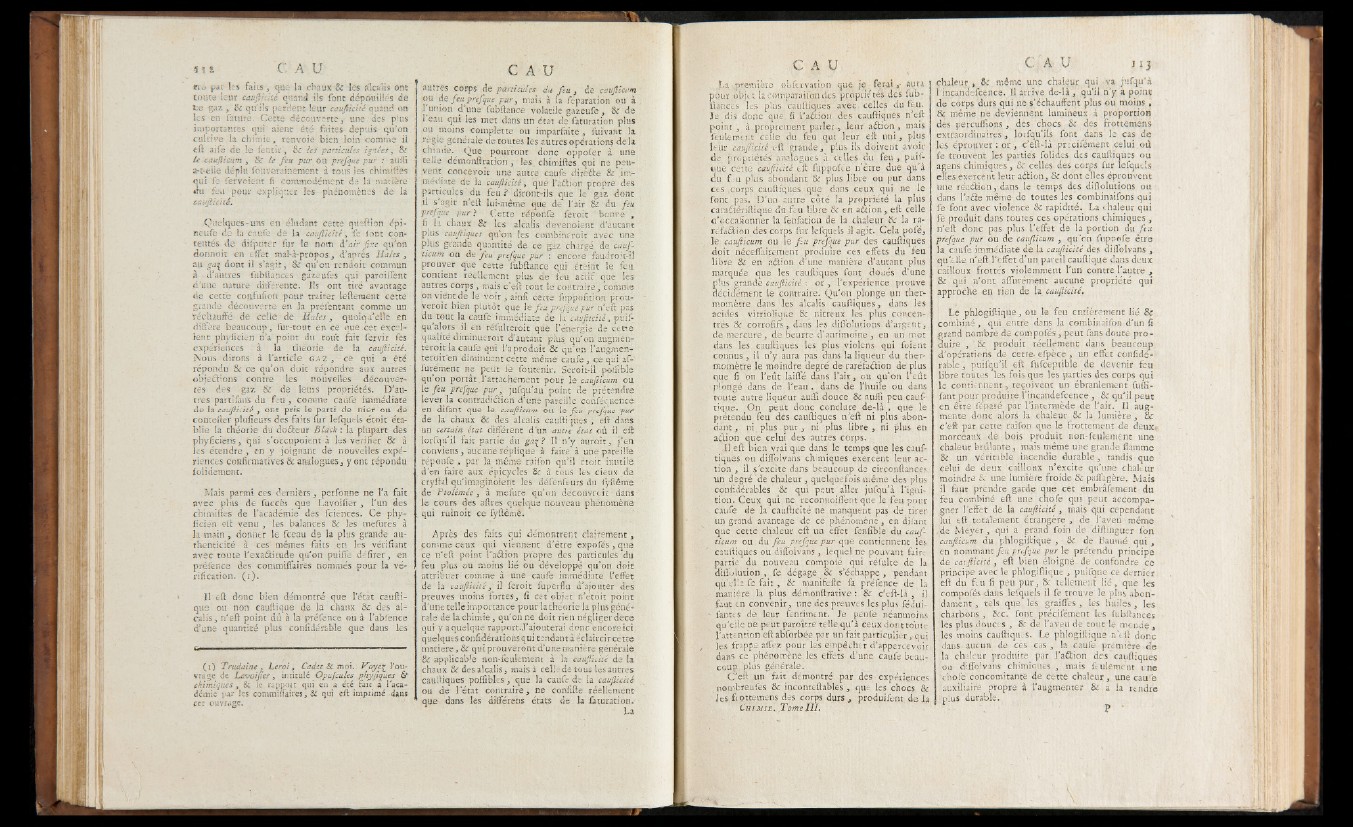 112 C A U
mis par les faits, que la chaux & les alcalis ont
toute leur causticité quand ils sont dépouillés de
ce gaz, & qu'ils perdent leur causticité quand on
les en sature. Cette découverte, une des plus
importantes qui aient été faites depuis qu'on
cultive la chimie, renvoie bien loin comme il
est aisé de le sentir, & les particules ignées, &
le causticum, & le feu pur ou presque pur : aussi
a-t-elle déplu souverainement à tous les chimistes
qui se servoient si commodément de la matière
du feu pour expliquer les phénomènes de la
causticité.
Quelques-uns en éludant cette question épineuse
de la cause de la causticité, se sont contentés
de disputer sur le nom d'air fixe qu'on
donnoit en effet mal-à-propos, d'après Hales,
au gaz dont il s'agit, & qu'on rendoit commun
à d'autres substances gazeuses qui paroissent
d'une nature différente. Ils ont tiré avantage
de cette confusion pour traiter lestement cette
grande découverte en la présentant comme un
réchauffé de celle de Hales, quoiqu'elle en
diffère beaucoup, sur-tout en ce que cet excellent
physicien n'a point du tout fait servir ses
expériences à la théorie de la causticité.
Nous dirons à l'article GAZ, ce qui a été
répondu & ce qu'on doit répondre aux autres
objections contre les nouvelles découvertes
des gaz & de leurs propriétés. D'autres
partisans du feu, comme cause immédiate
de la causticité, ont pris le parti de nier ou de
contester plusieurs des faits sur lesquels étoit établie
la théorie du docteur Black : la plupart des
physiciens, qui s'occupoient à les vérifier & à
les étendre, en y joignant de nouvelles expériences
confirmatives & analogues, y ont répondu
solidement.
Mais parmi ces derniers, personne ne l'a fait
avec plus de succès que Lavoisier, l'un des
chimistes de l'académie des sciences. Ce physicien
est venu, les balances & les mesures à
la main, donner le sceau de la plus grande authenticité
à ces mêmes faits en les vérifiant
avec toute l'exactitude qu'on puisse desirer, en
présence des commissaires nommés pour la vérification.
(1).
Il est donc bien démontré que l'état caustique
ou non caustique de la chaux & des alcalis,
n'est point dû à la présence ou à l'absence
d'une quantité plus considérable que dans les
(1) Trudaine, Leroi, Cadet & moi. Voyez l'ouvrage
de Lavoisier, intitulé Opuscules physiques &
chimiques, & le rapport qui en a été fait à l'académie
par les commissaires, & qui est imprimé dans
cet ouvrage.
C A U
autres corps de particules du feu, de causticum
ou de feu presque pur, mais à la séparation ou à
l'union d'une substance volatile gazeuse, & de
l'eau qui les met dans un état de saturation plus
ou moins complette ou imparfaite, suivant la
règle générale de toutes les autres opérations de la
chimie. Que pourront donc opposer à une
telle démonstration, les chimistes qui ne peuvent
concevoir une autre cause directe & immédiate
de la causticité, que l'action propre des
particules du feu ? diront-ils que le gaz dont
il s'agit n'est lui-même que de l'air & du feu
presque pur ? Cette réponse seroit bonne,
si la chaux & les alcalis devenoient d'autant
plus caustiques qu'on les combineroit avec une
plus grande quantité de ce gaz chargé de causticum
ou de feu presque pur : encore faudroit-il
prouver que cette substance qui éteint le feu
contient réellement plus de feu actif que les
autres corps, mais c'est tout le contraire, comme
on vient de le voir, ainsi cette supposition prouveroit
bien plutôt que le feu presque pur n'est pas
du tout la cause immédiate de la causticité, puisqu'alors
il en résulteroit que l'énergie de cette
qualité diminueroit d'autant plus qu'on augmenteroit
la cause qui l'a produit & qu'on l'augmenteroit
en diminuant cette même cause, ce qui assurément
ne peut se soutenir. Seroit-il possible
qu'on portât l'attachement pour le causticum ou
le feu presque pur, jusqu'au point de prétendre
lever la contradiction d'une pareille conséquence
en disant que le causticum ou le feu presque pur
de la chaux & des alcalis caustiques, est dans
un certain état différent d'un autre état où il est
lorsqu'il fait partie du gaz ? Il n'y auroit, j'en
conviens, aucune réplique à faire à une pareille
réponse, par la même raison qu'il étoit inutile
d'en faire aux épicycles & à tous les cieux de
crystal qu'imaginoient les défenseurs du système
de Ptolémée, à mesure qu'on découvroit dans
le cours des astres quelque nouveau phénomène
qui ruinoit ce système.
Après des faits qui démontrent clairement,
comme ceux qui viennent d'être exposés, que
ce n'est point l'action propre des particules du
feu plus ou moins lié ou développé qu'on doit
attribuer comme à une cause immédiate l'effet
de la causticité, il seroit superflu d'ajouter des
preuves moins fortes, si cet objet n'étoit point
d'une telle importance pour la théorie la plus générale
de la chimie, qu'on ne doit rien négliger de ce
qui y a quelque rapport. J'ajouterai donc encore ici
quelques considérations qui tendant à éclaircir cette
matière, & qui prouveront d'une manière générale
& applicable non-seulement à la causticité de la
chaux & des alcalis, mais à celle de tous les autres
caustiques possibles, que la cause de la causticité
ou de l'état contraire, ne consiste réellement
que dans les différens états de la saturation.
La
C A U
La première observation que je ferai, aura
pour objet la comparaison des propriétés des substances
les plus caustiques avec celles du feu.
Je dis donc que si l'action des caustiques n'est
point, à proprement parler, leur action, mais
seulement celle du feu qui leur est uni, plus
leur causticité est grande, plus ils doivent avoir
de propriétés analogues à celles du feu, puisque
cette causticité est supposée n'être due qu'à
du feu plus abondant & plus libre ou pur dans
ces corps caustiques que dans ceux qui ne le
sont pas. D'un autre côté la propriété la plus
caractéristique du feu libre & en action, est celle
d'occasionner la sensation de la chaleur & la raréfaction
des corps sur lesquels il agit. Cela posé,
le causticum ou le feu presque pur des caustiques
doit nécessairement produire ces effets du feu
libre & en action d'une manière d'autant plus
marquée que les caustiques sont doués d'une
plus grande causticité : or, l'expérience prouve
décidément le contraire. Qu'on plonge un thermomètre
dans les alcalis caustiques, dans les
acides vitriolique & nitreux les plus concentrés
& corrosifs, dans les dissolutions d'argent,
de mercure, de beurre d'antimoine, en un mot
dans les caustiques les plus violens qui soient
connus, il n'y aura pas dans la liqueur du thermomètre
le moindre degré de raréfaction de plus
que si on l'eût laissé dans l'air, ou qu'on l'eût
plongé dans de l'eau, dans de l'huile ou dans
toute autre liqueur aussi douce & aussi peu caustique.
On peut donc conclure de-là, que le
prétendu feu des caustiques n'est ni plus abondant,
ni plus pur, ni plus libre, ni plus en
action que celui des autres corps.
Il est bien vrai que dans le temps que les caustiques
ou dissolvans chimiques exercent leur action,
il s'excite dans beaucoup de circonstances
un degré de chaleur, quelquefois même des plus
considérables & qui peut aller jusqu'à l'ignition.
Ceux qui ne reconnoissent que le feu pour
cause de la causticité ne manquent pas de tirer
un grand avantage de ce phénomène, en disant
que cette chaleur est un effet sensible du causticum
ou du feu presque pur que contiennent les
caustiques ou dissolvans, lequel ne pouvant faire
partie du nouveau composé qui résulte de la
dissolution, se dégage & s'échappe, pendant
qu'elle se fait, & manifeste sa présence de la
manière la plus démonstrative : & c'est-là, il
faut en convenir, une des preuves les plus séduisantes
de leur sentiment. Je pense néanmoins
qu'elle ne peut paroître telle qu'à ceux dont toute
l'attention est absorbée par un fait particulier, qui
les frappe assez pour les empêcher d'appercevoir
dans ce phénomène les effets d'une cause beaucoup
plus générale.
C'est un fait démontré par des expériences
nombreuses & incontestables, que les chocs &
les frottemens des corps durs, produisent de la
CHIMIE. Tome III.
C A U 113
chaleur, & même une chaleur qui va jusqu'à
l'incandescence. Il arrive de-là, qu'il n'y a point
de corps durs qui ne s'échauffent plus ou moins,
& même ne deviennent lumineux à proportion
des percussions, des chocs & des frottemens
extraordinaires, lorsqu'ils sont dans le cas de
les éprouver : or, c'est-là précisément celui où
se trouvent les parties solides des caustiques ou
agens chimiques, & celles des corps sur lesquels
elles exercent leur action, & dont elles éprouvent
une réaction, dans le temps des dissolutions ou
dans l'acte même de toutes les combinaisons qui
se font avec violence & rapidité. La chaleur qui
se produit dans toutes ces opérations chimiques,
n'est donc pas plus l'effet de la portion du feu
presque pur ou de causticum, qu'on suppose être
la cause immédiate de la causticité des dissolvans,
qu'elle n'est l'effet d'un pareil caustique dans deux
cailloux frottés violemment l'un contre l'autre,
& qui n'ont assurément aucune propriété qui
approche en rien de la causticité.
Le phlogistique, ou le feu entièrement lié &
combiné, qui entre dans la combinaison d'un si
grand nombre de composés, peut sans doute produire,
& produit réellement dans beaucoup
d'opérations de cette espèce, un effet considérable,
puisqu'il est susceptible de devenir feu
libre toutes les fois que les parties des corps qui
le contiennent, reçoivent un ébranlement suffisant
pour produire l'incandescence, & qu'il peut
en être séparé par l'intermède de l'air. Il augmente
donc alors la chaleur & la lumière, &
c'est par cette raison que le frottement de deux
morceaux de bois produit non-seulement une
chaleur brûlante, mais même une grande flamme
& un véritable incendie durable, tandis que
celui de deux cailloux n'excite qu'une chaleur
moindre & une lumière froide & passagère. Mais
il faut prendre garde que cet embrâsement du
feu combiné est une chose qui peut accompagner
l'effet de la causticité, mais qui cependant
lui est totalement étrangère, de l'aveu même
de Meyer, qui a grand soin de distinguer son
causticum du phlogistique, & de Baumé qui,
en nommant feu presque pur le prétendu principe
de causticité, est bien éloigné de confondre ce
principe avec le phlogistique, puisque ce dernier
est du feu si peu pur, & tellement lié, que les
composés dans lesquels il se trouve le plus abondamment,
tels que les graisses, les huiles, les
charbons, &c. sont précisément les substances
les plus douces, & de l'aveu de tout le monde,
les moins caustiques. Le phlogistique n'est donc
dans aucun de ces cas, la cause première de
la chaleur produite par l'action des caustiques
ou dissolvans chimiques, mais seulement une
chose concomitante de cette chaleur, une cause
auxiliaire propre à l'augmenter & à la rendre
plus durable.
P